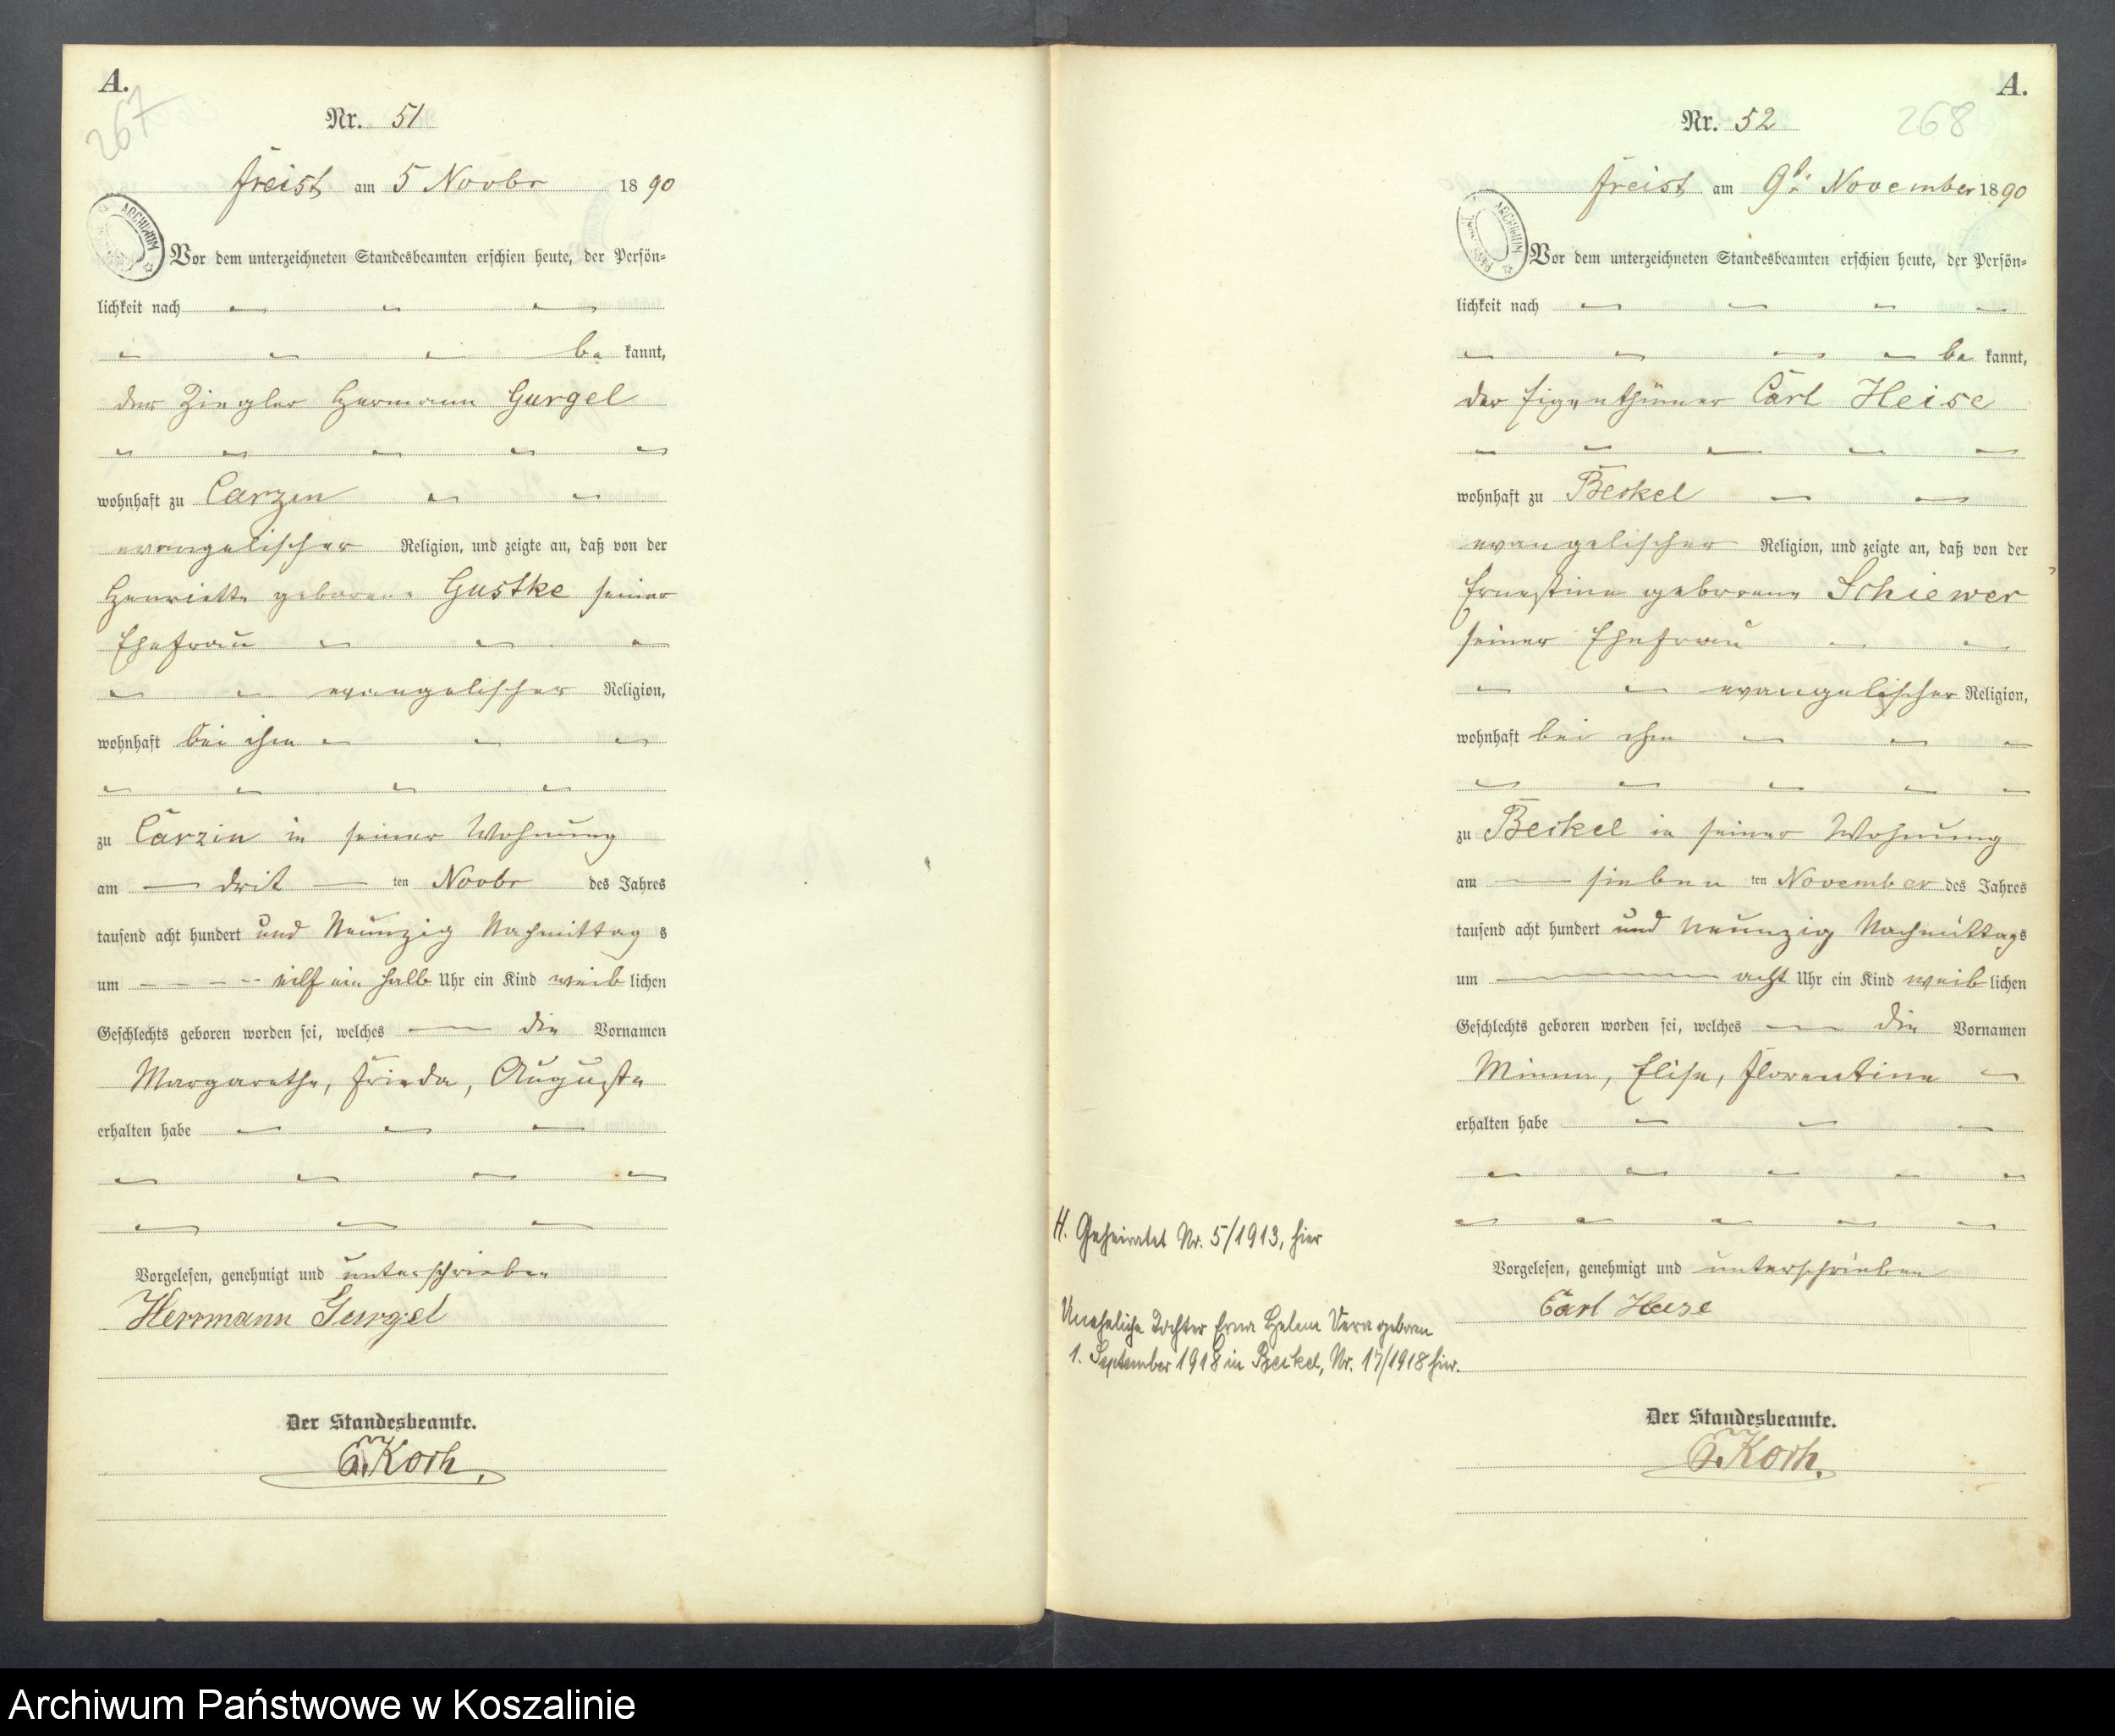 A.
267
Nr. 51
Freist am 5 Novbr 1890
Vor dem unterzeichneten Standesbeamten erschien heute, der Persön-
lichkeit nach
be kannt,
der Ziegler Hermann Gurgel
wohnhaft zu Carzin
evangelischer Religion, und zeigte an, daß von der
Henriette geborene Gustke seiner
Ehefrau
evangelischer Religion,
wohnhaft bei ihm
zu Carzin in seiner Wohnung
am drit ten Novbr des Jahres
tausend acht hundert und Neunzig Nachmittag s
um eilf ein halb Uhr ein Kind weib lichen
Geschlechts geboren worden sei, welches die Vornamen
Margarethe, Frieda, Auguste
erhalten habe
Vorgelesen, genehmigt und unterschrieben
Herrmann Gurgel
Der Standesbeamte.
Koch.
ARCHIWUM
A.
268
Nr. 52
Freist am 9t. November 1890
Vor dem unterzeichneten Standesbeamten erschien heute, der Persön-
lichkeit nach
be kannt,
der Eigenthümer Carl Heise
wohnhaft zu Beskel
evangelischer Religion, und zeigte an, daß von der
Ernestine geborene Schiewer
seiner Ehefrau
evangelischer Religion,
wohnhaft bei ihm
zu Beskel in seiner Wohnung
am sieben ten November des Jahres
tausend acht hundert und neunzig Nachmittags
um acht Uhr ein Kind weib lichen
Geschlechts geboren worden sei, welches die Vornamen
Minna, Elise, Florentine
erhalten habe
Vorgelesen, genehmigt und unterschrieben
Carl Heise
Der Standesbeamte.
Koch.
ARCHIWUM
H. Geheiratet Nr. 5/1913, hier
Uneheliche Tochter Erna Helene Vera geboren
1. September 1918 in Beskel, Nr. 17/1918 hier.
Archiwum Państwowe w Koszalinie